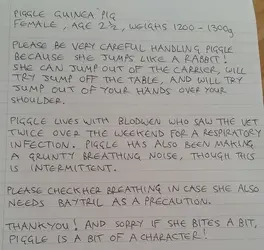 PIGGLE GUINEA PIG
FEMALE, AGE 2½, WEIGHS 1200 - 1300g
PLEASE BE VERY CAREFUL HANDLING PIGGLE
BECAUSE SHE JUMPS LIKE A RABBIT!
SHE CAN JUMP OUT OF THE CARRIER, WILL
TRY JUMP OFF THE TABLE, AND WILL TRY
JUMP OUT OF YOUR HANDS OVER YOUR
SHOULDER.
PIGGLE LIVES WITH BLODWEN WHO SAW THE VET
TWICE OVER THE WEEKEND FOR A RESPIRATORY
INFECTION. PIGGLE HAS ALSO BEEN MAKING
A GRUNTY BREATHING NOISE, THOUGH THIS
IS INTERMITTENT.
PLEASE CHECK HER BREATHING IN CASE SHE ALSO
NEEDS BAYTRIL AS A PRECAUTION.
THANKYOU! AND SORRY IF SHE BITES A BIT,
PIGGLE IS A BIT OF A CHARACTER!